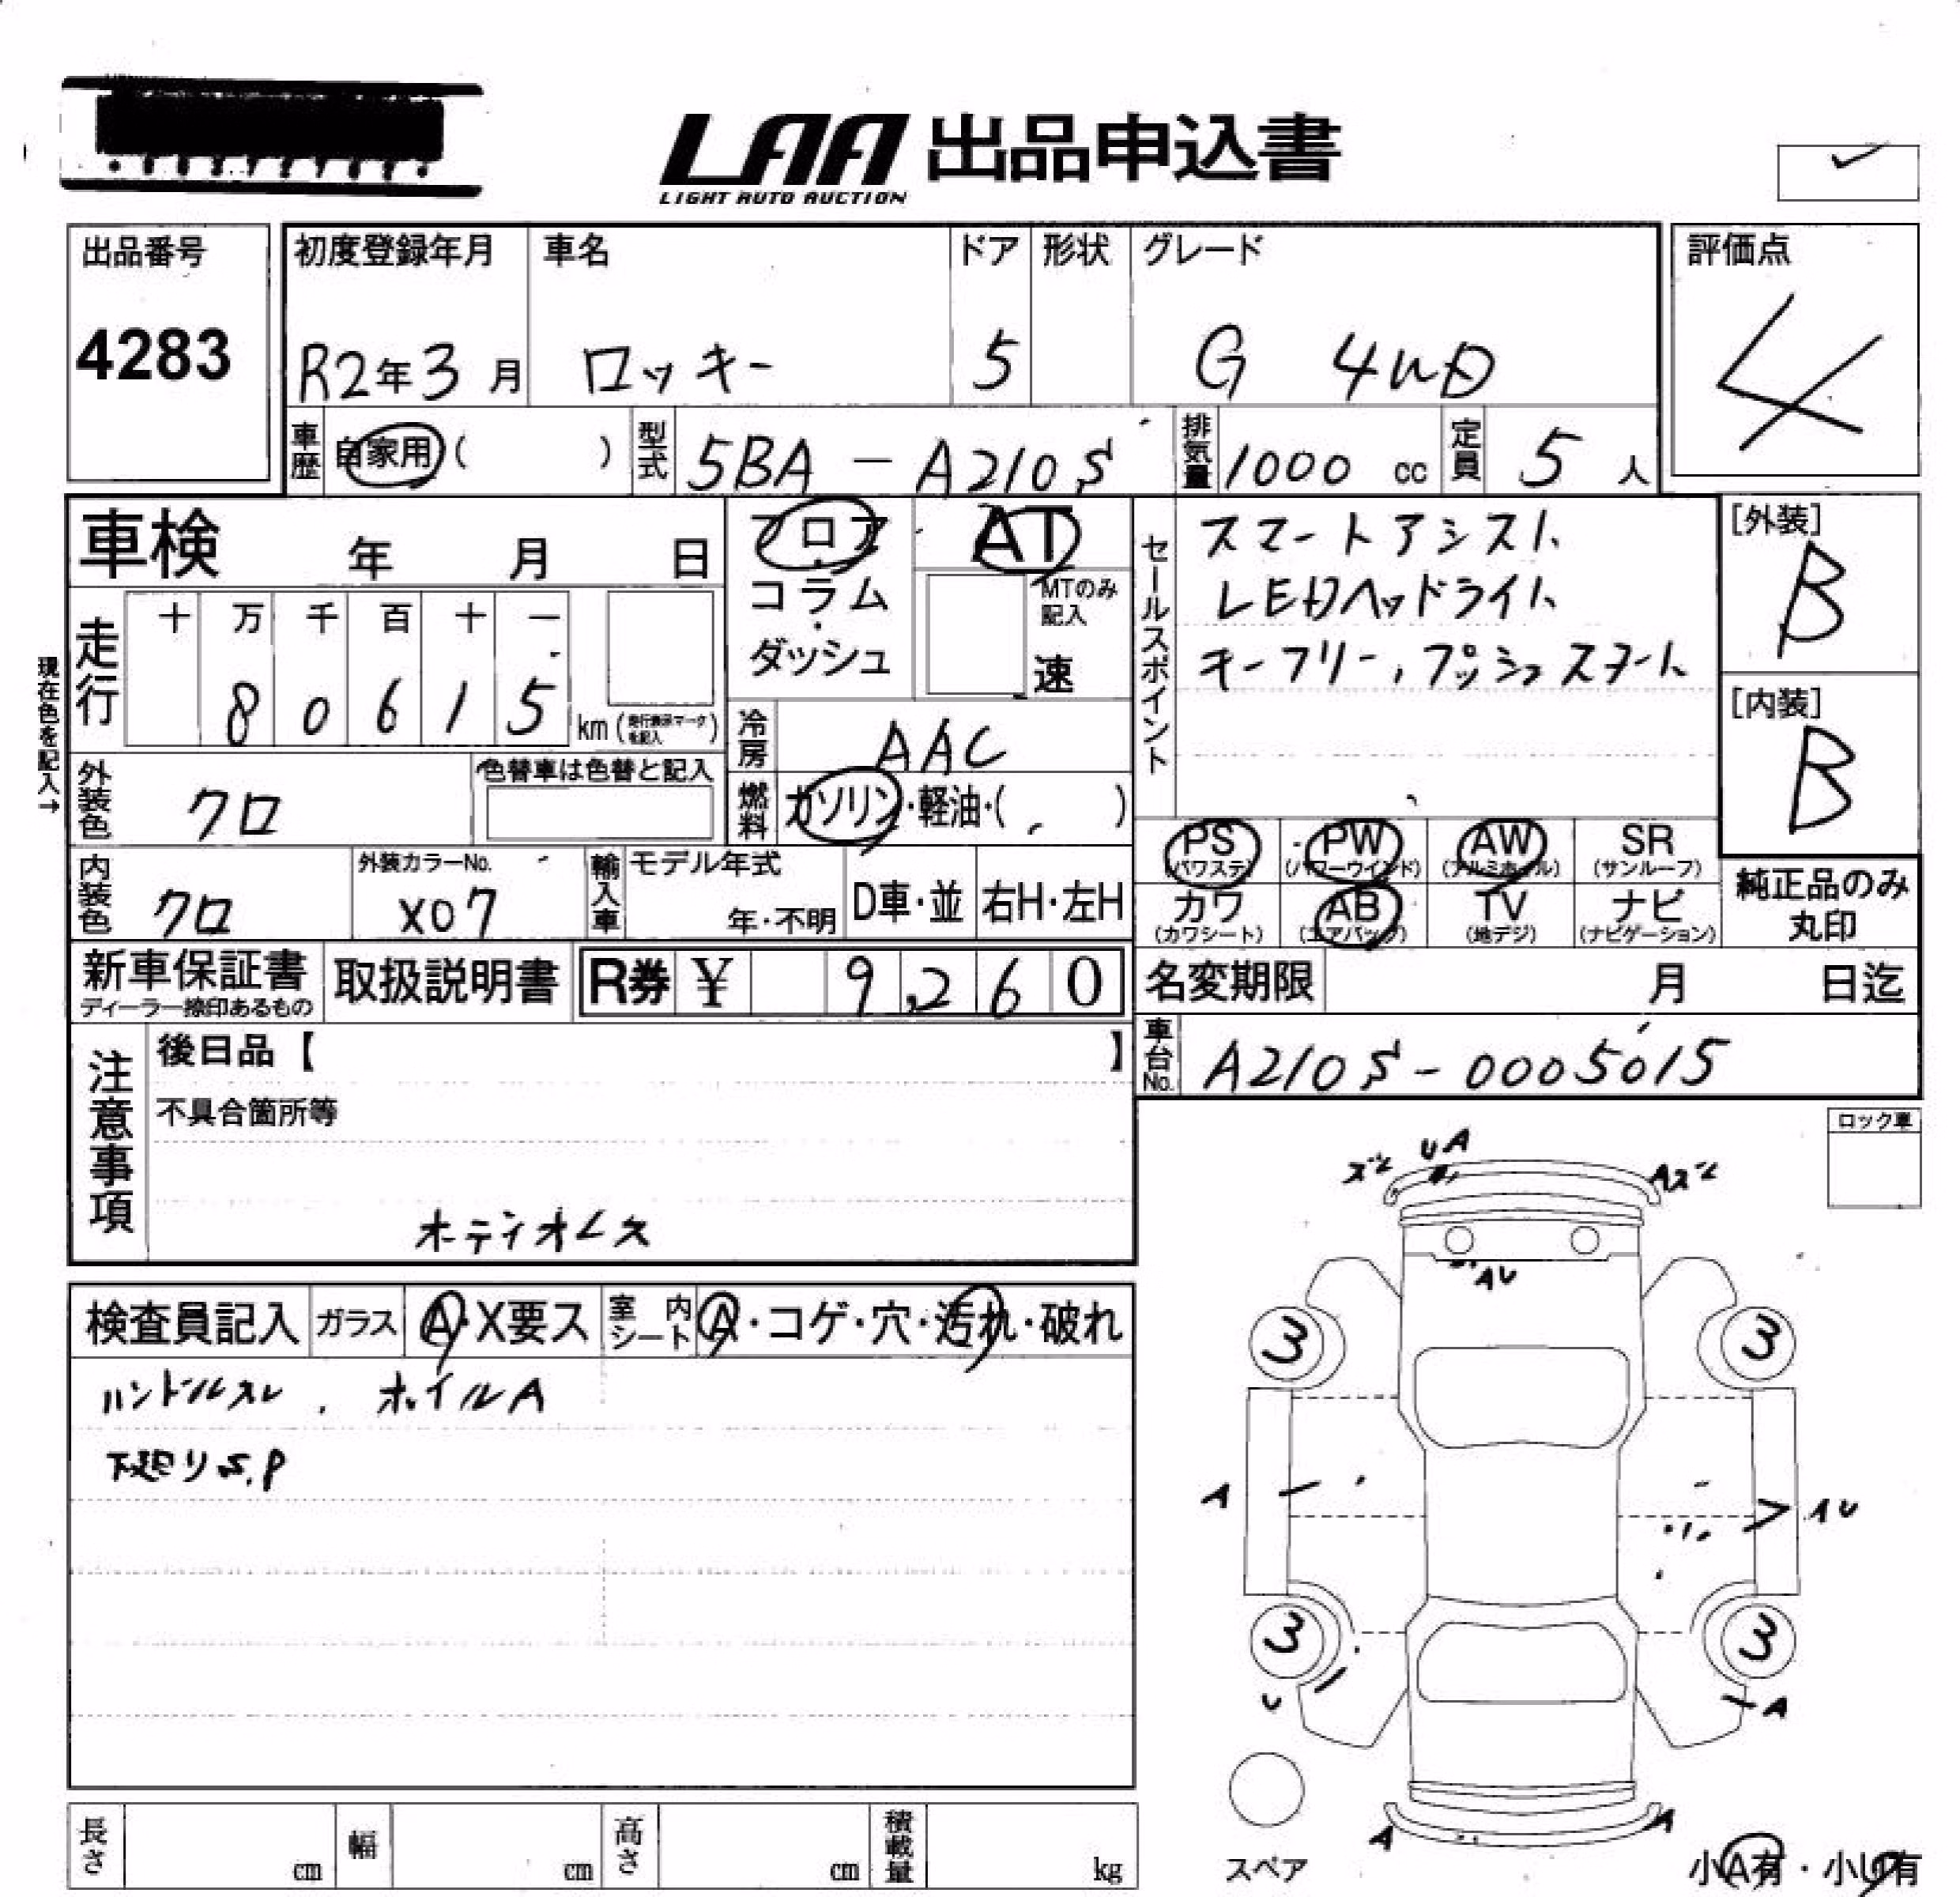 LAA 出品申込書
LIGHT AUTO AUCTION
出品番号
4283
初度登録年月
R2年3月
車名
ロッキー
ドア
5
形状
グレード
G 4WD
評価点
4
車歴
自家用( )
型式
5BA-A210S
排気量
1000 cc
定員
5人
車検 年 月 日
フロア
コラム
ダッシュ
AT
MTのみ
記入
速
セールスポイント
スマートアシスト
LEDヘッドライト
キーフリー,プッシュスタート
[外装]
B
[内装]
B
現在色を記入→
走行
十 万 千 百 十 一
8 0 6 1 5
km(走行表示マークを記入)
冷房
AAC
燃料
ガソリン・軽油・( )
外装色
クロ
色替車は色替と記入
内装色
クロ
外装カラーNo.
X07
輸入車
モデル年式
年・不明
D車・並
右H・左H
PS
(パワステ)
PW
(パワーウインド)
AW
(アルミホイル)
SR
(サンルーフ)
カワ
(カワシート)
AB
(エアバッグ)
TV
(地デジ)
ナビ
(ナビゲーション)
純正品のみ
丸印
新車保証書
ディーラー捺印あるもの
取扱説明書
R券 ¥ 9,260
名変期限 月 日迄
車台No.
A210S-0005015
注意事項
後日品【 】
不具合箇所等
ホディオレス
ロック車
検査員記入
ガラス
A・X要ス
室内シート
A・コゲ・穴・汚れ・破れ
ハンドルスレ、ホイルA
下廻りS,P
ズレ
UA
Aズレ
AU
3
3
A
AU
3
3
U
A
A
A
スペア
小A有・小U有
長さ cm
幅 cm
高さ cm
積載量 kg